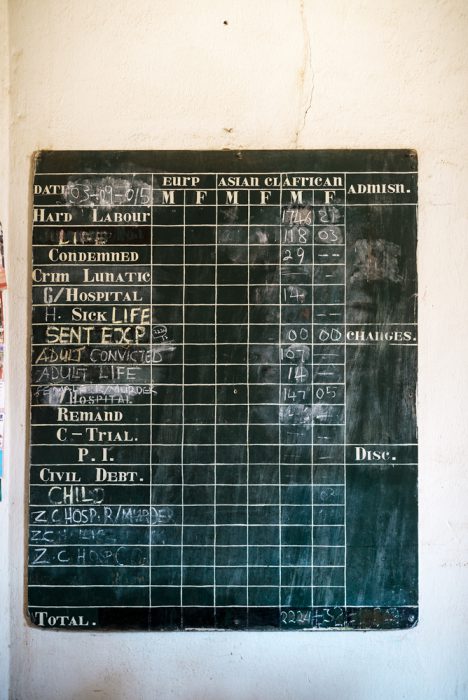 EURP ASIAN CL AFRICAN ADMISN.
DATE 03-09-015 M F M F M F
HARD LABOUR 1746
LIFE 118 03
CONDEMNED 29 --
CRIM LUNATIC - --
G/HOSPITAL 14 -
H. SICK LIFE - --
SENT EXP 00 00 CHANGES.
ADULT CONVICTED 167 --
ADULT LIFE 14 --
R/MURDER 147 05
HOSPITAL
REMAND
C-TRIAL.
P. I. DISC.
CIVIL DEBT.
CHILD
Z.C HOSP. R/MURDER
Z.C
Z.C HOSP
TOTAL. 2224+32